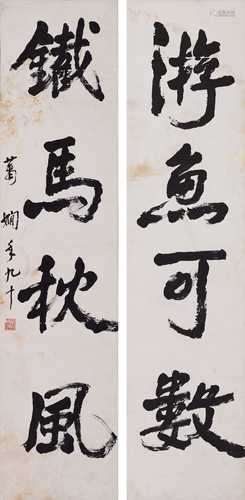 游魚可數
鐵馬秋風
萬嫻年九十